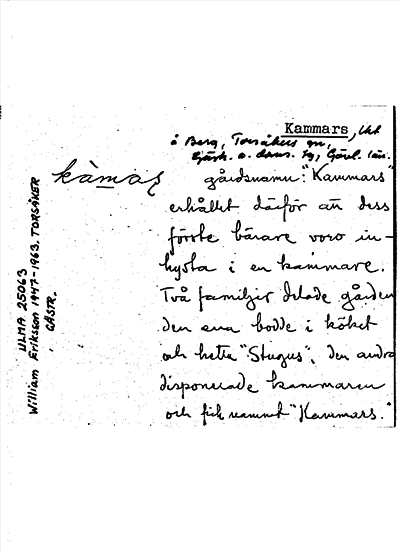 Kammars,
å Berg, Torsåkers sn,
Gästr. o. Läns. tg, Gävl. län.
kàmaʂ gårdsnamn: "Kammars"
erhållet därför att dess
förste bärare voro in-
hysta i en kammare.
Två familjer delade gården
den ena bodde i köket
och hette "Stugus", den andra
disponerade kammaren
och fick namnet "Kammars."
ULMA 25063
William Eriksson 1947-1963. TORSÅKER
GÄSTR.